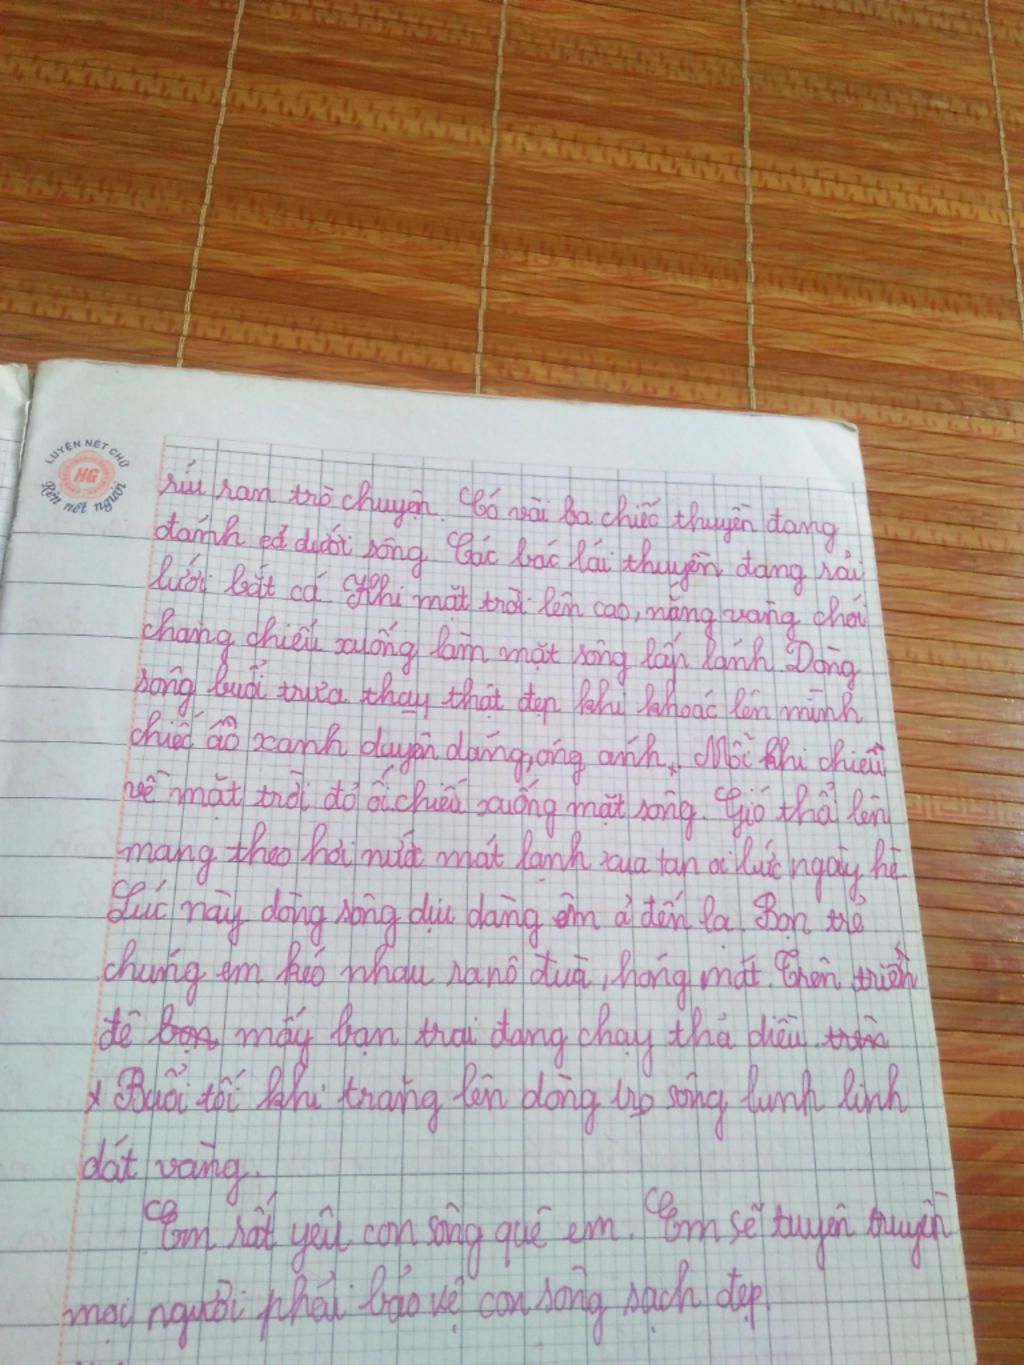 LUYỆN NÉT CHỮ
HG
Rèn nết người
ríu ran trò chuyện. Có vài ba chiếc thuyền đang
đánh cá dưới sông. Các bác lái thuyền đang rải
lưới bắt cá. Khi mặt trời lên cao, nắng vàng chói
chang chiếu xuống làm mặt sông lấp lánh. Dòng
sông buổi trưa thay thật đẹp khi khoác lên mình
chiếc áo xanh duyên dáng, óng ánh. Mỗi khi chiều
về mặt trời đỏ ối chiếu xuống mặt sông. Gió thổ lên
mang theo hơi nước mát lạnh xua tan oi bức ngày hè
Lúc này dòng sông dịu dàng êm ả đến lạ. Bọn trẻ
chúng em kéo nhau ra nô đùa, hóng mát. Trên triền
đê bọn mấy bạn trai đang chạy thả diều trên
x Buổi tối khi trăng lên dòng sông lunh linh
dát vàng.
Em rất yêu con sông quê em. Em sẽ tuyên truyền
mọi người phải bảo vệ con sông sạch đẹp.